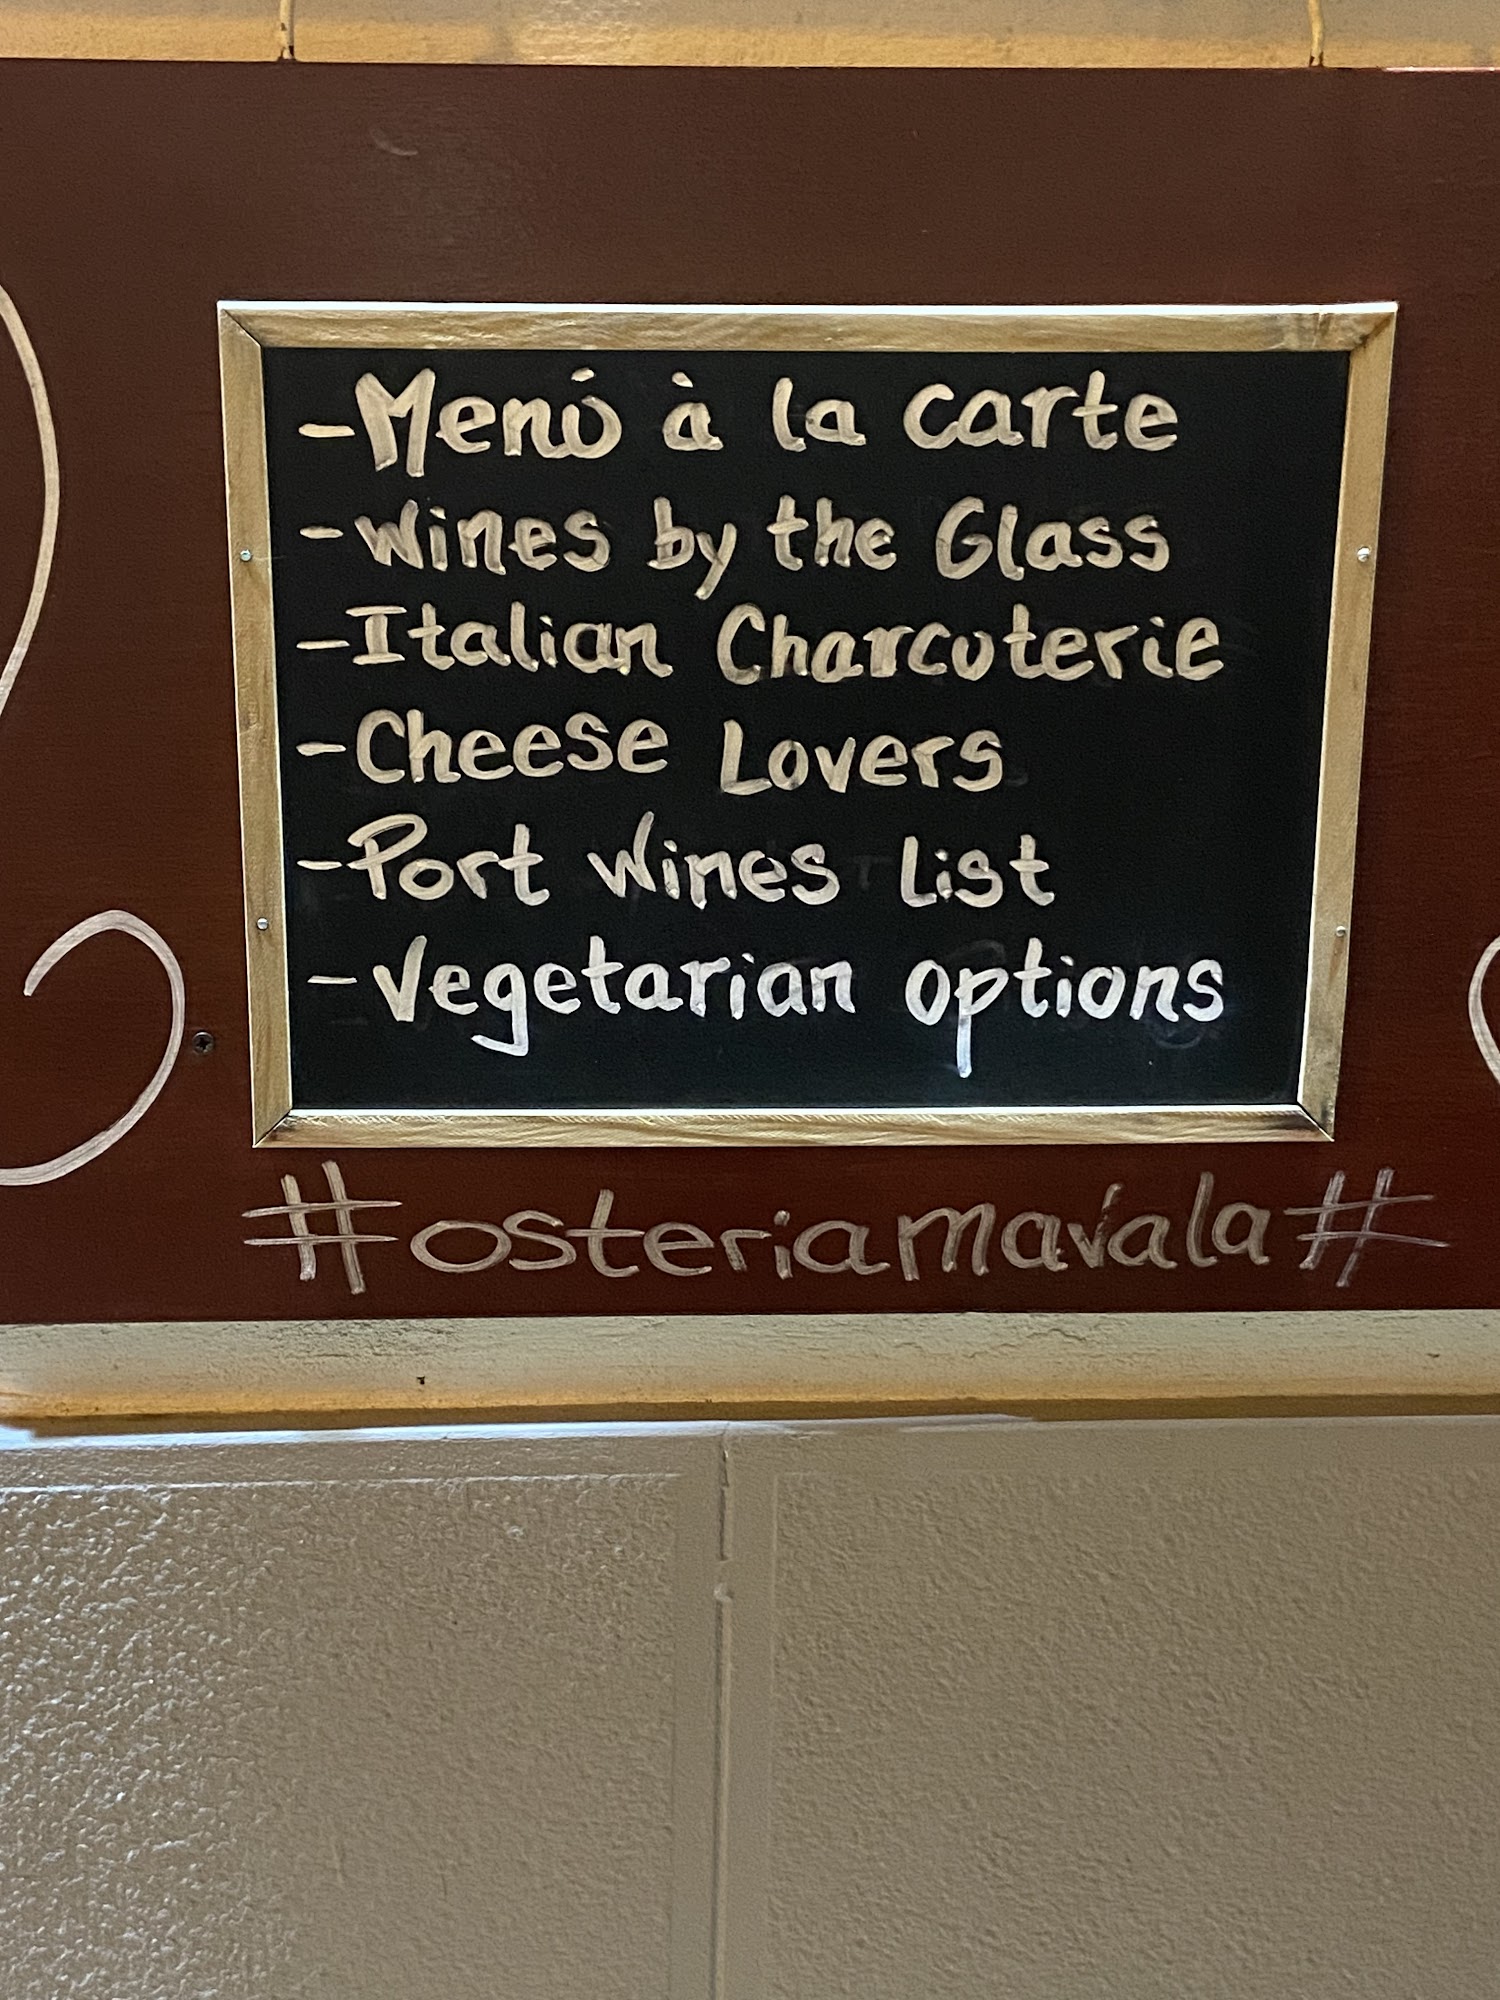 -Menú à la carte
-Wines by the Glass
-Italian Charcuterie
-Cheese Lovers
-Port Wines List
-Vegetarian options
#osteriamavala#